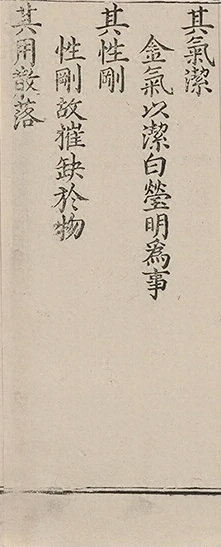 其氣潔
金氣以潔白瑩明爲事
其性剛
性剛故摧缺於物
其用散落